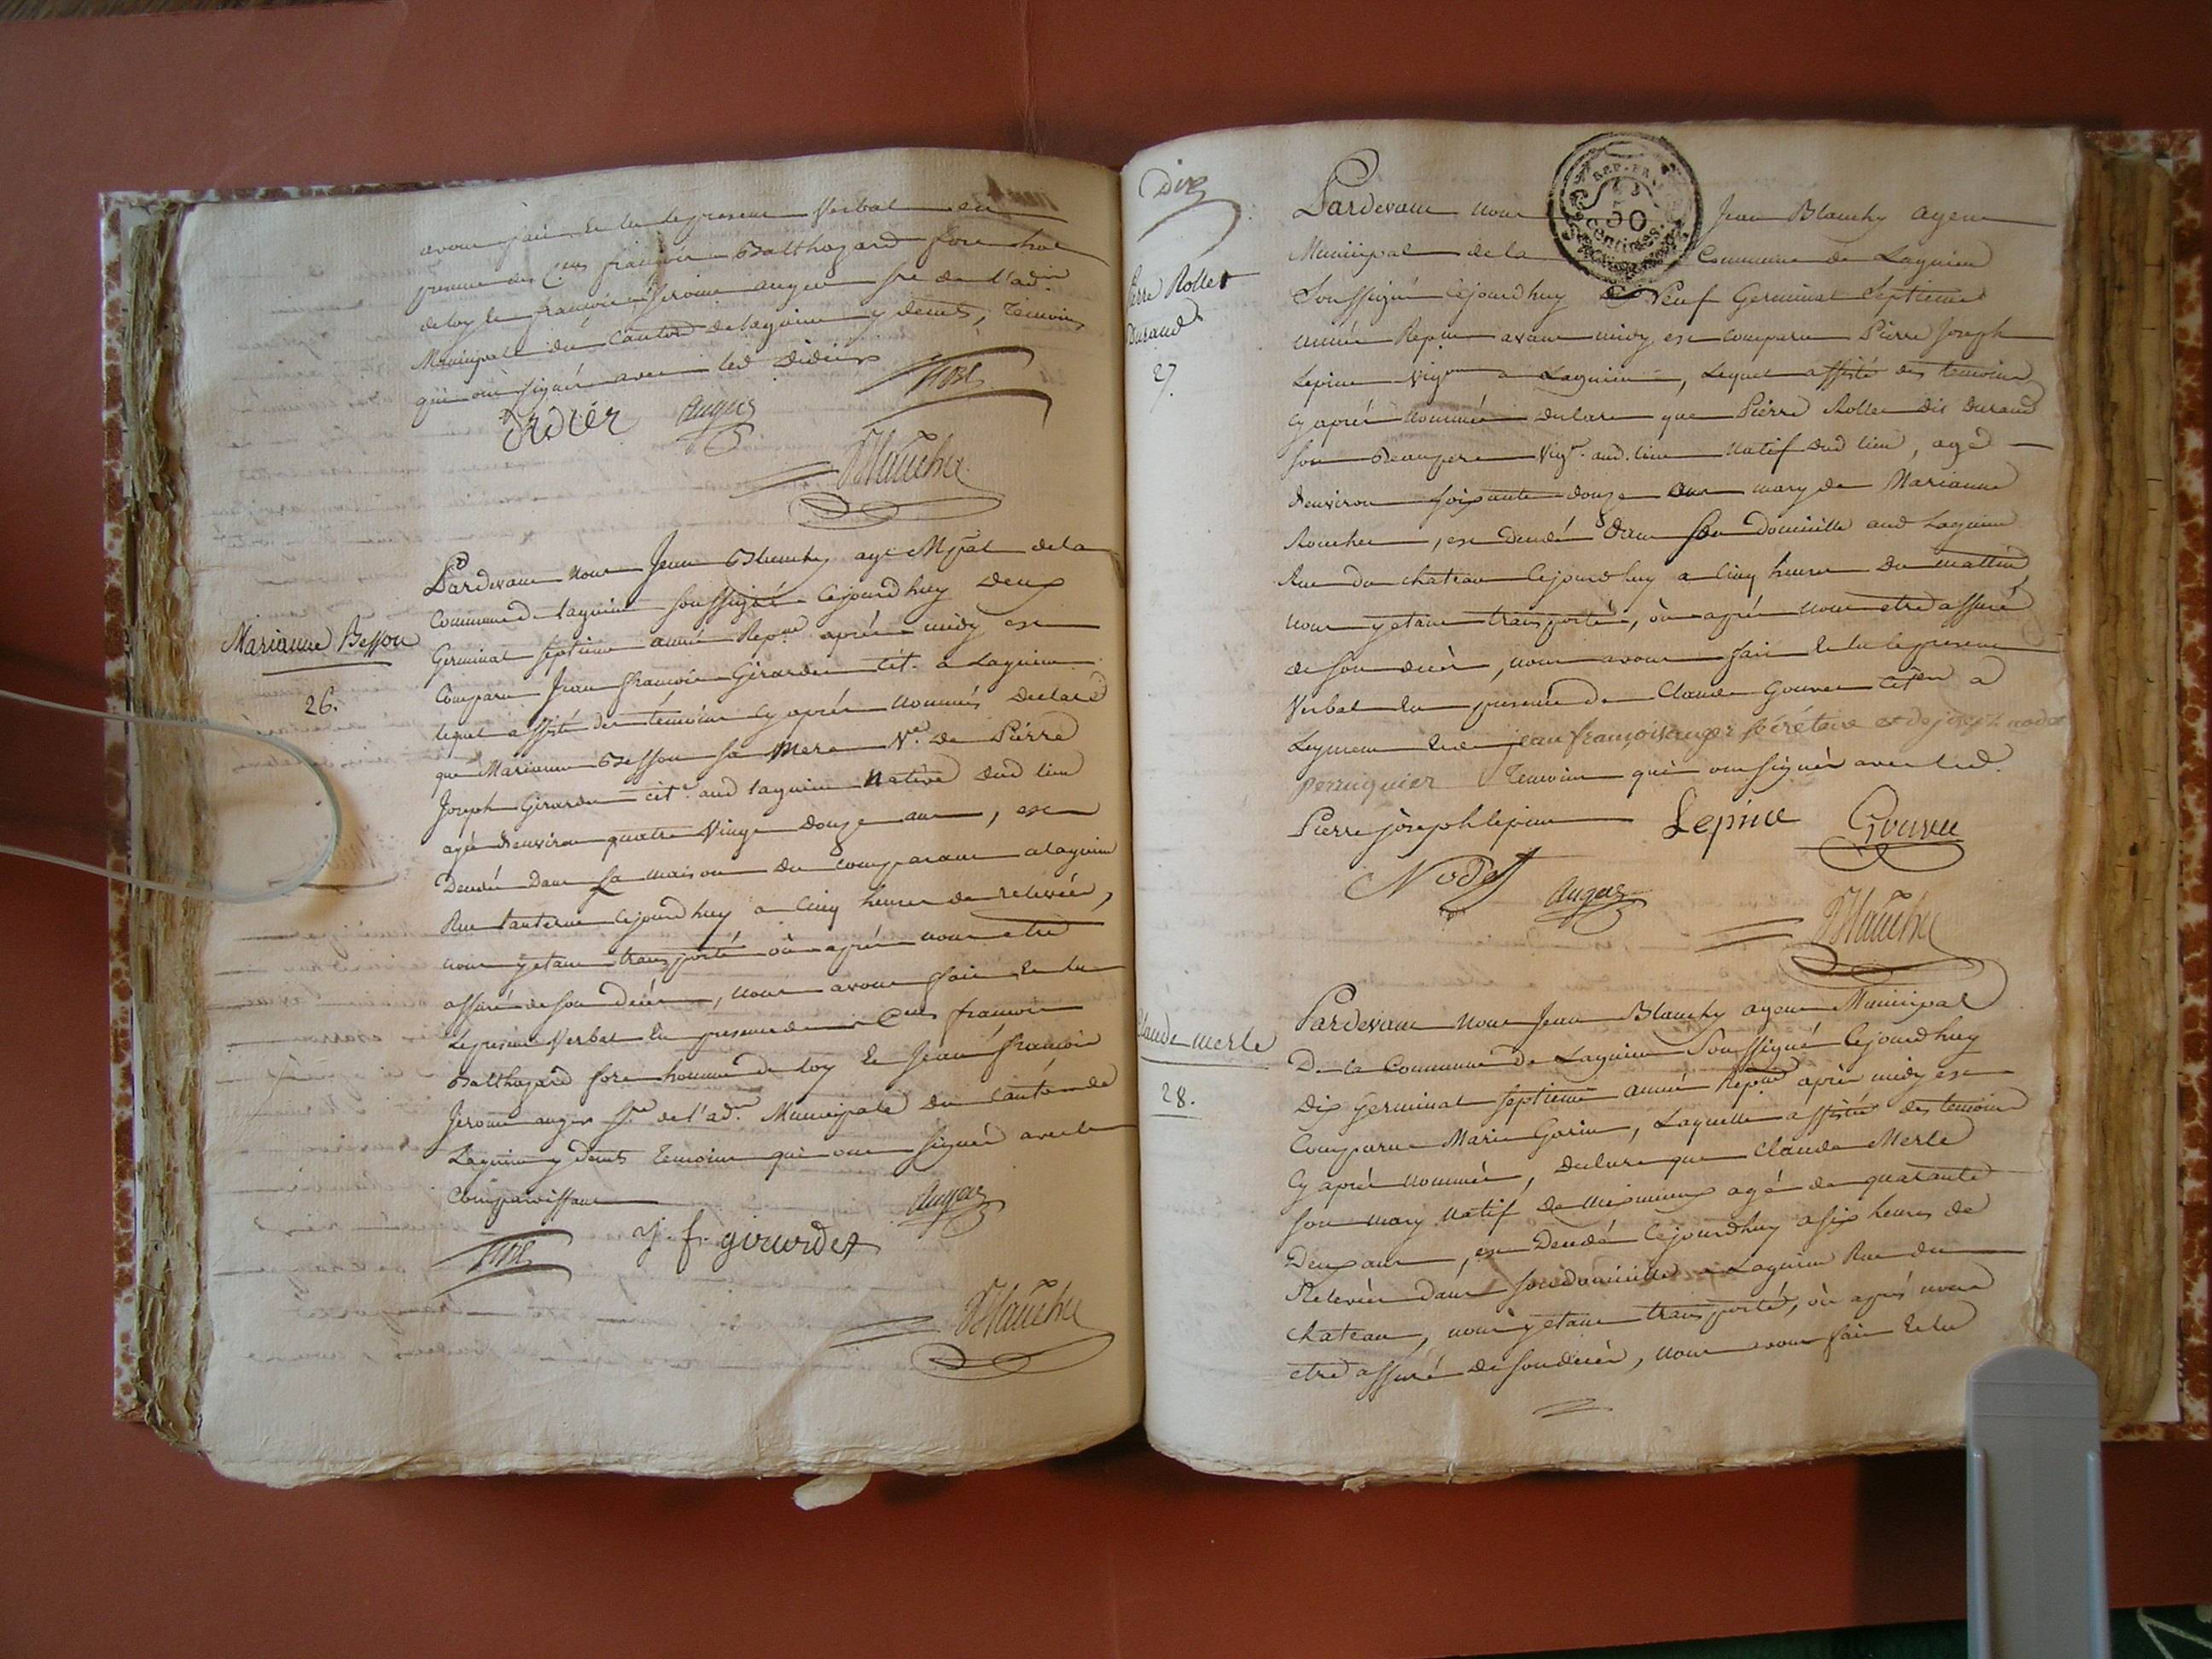 avons fait et lu le present Verbal en
presence des C.ens françois Balthazard fore home
de loy et françois jerome auger sre de l'ad.on
Municipale du Canton de lagnieu y demts, temoins
qui ont signés avec led Didier
Didier auger fore
Blanchy
Pardevant nous Jean Blanchy agt Mpal de la
Commune de lagnieu soussigné Cejourdhuy Deux
Marianne Besson
26.
Germinal septieme année Repne après midy est
Comparu Jean françois Girardet cit. a Lagnieu
lequel assisté des témoins cy après nommés Declare
que Marianne Besson sa Mere Ve. de Pierre
Joseph Girardet cit. aud lagnieu Native dud lieu
agée denviron quatre Vingt douze ans, est
Decedée dans la maison du comparant a lagnieu
Rue lanterne Cejourdhuy a Cinq heures de relevée,
nous y etant transporté où après nous etre
assuré de son decès, nous avons fait et lu
le present Verbal en presence des C.ens françois
Balthazard fore homme de loy et Jean françois
Jerome auger Sre de l'ad.on Municipale du Canton de
Lagnieu y demts temoins qui ont signés avec le
Comparoissant
auger
fore j. f. girardet
Blanchy
Dix
REP. FRA.
50
centimes
Pardevant nous Jean Blanchy agent
Municipal de la Commune de Lagnieu
Pierre Rollet
Durand
27.
Soussigné Cejourdhuy Neuf Germinal Septieme
année Repne avant midy est comparu Pierre Joseph
Lepine Vign a Lagnieu, Lequel assisté des temoins
cy après nommés declare que Pierre Rollet dit Durand
son Beaupere Vign. aud. lieu natif dud lieu, agé
denviron soixante douze ans mary de Marianne
, est decedé dans son Domicille aud Lagnieu
Rue du chateau Cejourdhuy a Cinq heures du mattin
nous y etant transporté, où après nous etre assuré
de son decès, nous avons fait et lu le present
Verbal en presence de Claude Gouvet Citen a
Leyment et de jean françois auger sécrétaire et de joseph nodet
perruquier temoins qui ont signés avec led.
Pierre josephe lepine Lepine Gouvet
Nodet auger
Blanchy
Claude Merle
28.
Pardevant nous Jean Blanchy agent Municipal
De la Commune de Lagnieu Soussigné Cejourdhuy
Dix Germinal septieme année Repne après midy est
Comparue Marie Gorin, Laquelle assistée des temoins
Cy après nommés, declare que Claude Merle
son mary natif de meximieux agé de quarante
Deux ans, est Decedé Cejourdhuy a six heures de
Relevée dans son domicille a Lagnieu Rue du
chateau, nous y etant transporté, où après nous
etre assuré de son decès, nous avons fait et lu